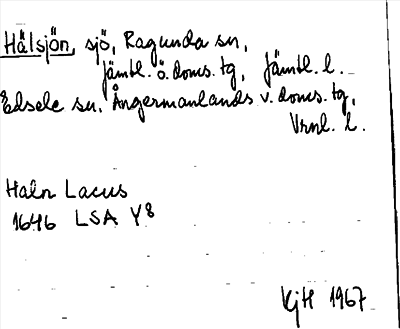 Hälsjön, sjö, Ragunda sn,
Jämtl. ö. doms. tg, Jämtl. l.
Edsele sn. Ångermanlands v. doms. tg,
Vrnl. l.
Haln Lacus
1646 LSA Y8
KjH 1967